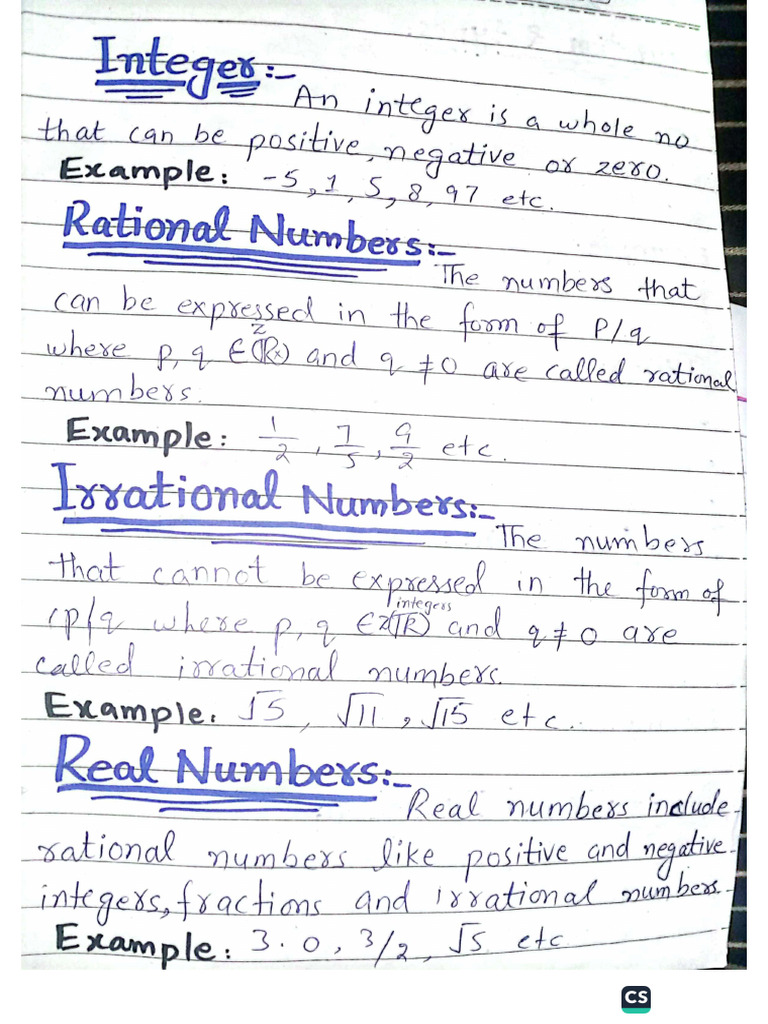 Integer:-
An integer is a whole no
that can be positive, negative or zero.
Example: -5, 1, 5, 8, 97 etc.
Rational Numbers:-
The numbers that
can be expressed in the form of P/q
where p, q ∈ Z and q ≠ 0 are called rational
numbers.
Example: 1/2, 7/5, 9/2 etc.
Irrational Numbers:-
The numbers
that cannot be expressed in the form of
p/q where p, q ∈ Z(IR) integers and q ≠ 0 are
called irrational numbers.
Example: √5, √11, √15 etc.
Real Numbers:-
Real numbers include
rational numbers like positive and negative
integers, fractions and irrational numbers.
Example: 3.0, 3/2, √5 etc
CS